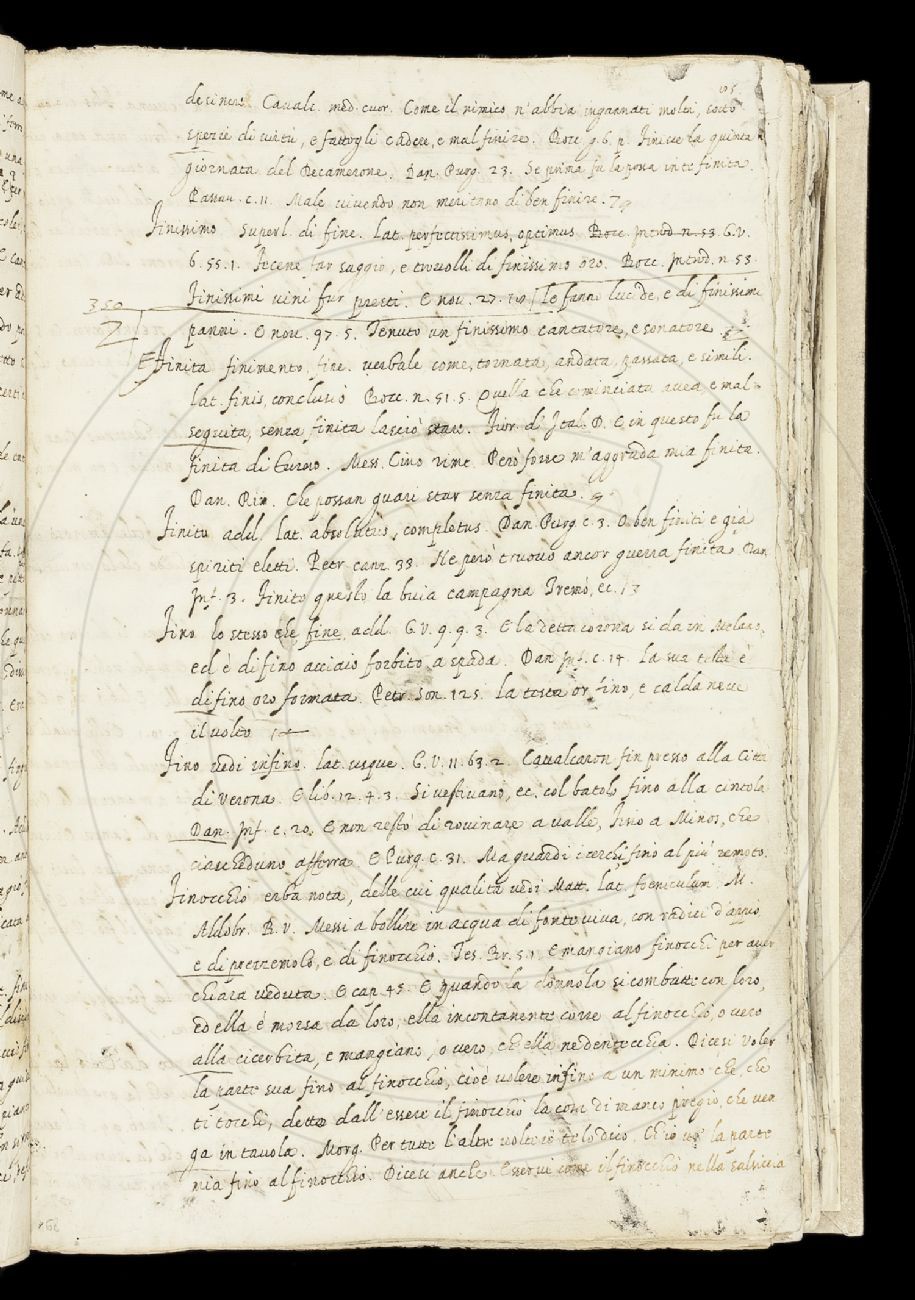 desinere. Caualc. med. cuor. Come il nimico n'abbia ingannati molti, sotto
spezie di uirtù, e fattogli cadere, e mal finire. Bocc. g. 6. p. Finisce la quinta
giornata del Decamerone. Dan. Purg. 23. Se prima fu la possa in te finita.
Passau. c. 11. Male uiuendo non meritano di ben finire.
Finissimo Superl. di fine. lat. perfectissimus, optimus. Bocc. introd. n. 53. G.V.
6. 55. 1. Fecene far saggio, e trouolli di finissimo oro. Bocc. introd. n. 53.
350
Finissimi uini fur presti. E nou. 27. le fanno large, e di finissimi
panni. E nou. 97. 5. Tenuto un finissimo cantatore, e sonatore
Finita finimento, fine. uerbale come, tornata, andata, passata, e simili.
lat. finis, conclusio. Bocc. n. 51. 5. Quella che cominciata auea, e mal
seguita, senza finita lasciò stare. Fior. di Ital. D. E in questo fu la
finita di Turno. Mess. Cino rime. Però forse m'aggrada mia finita.
Dan. Rim. Che possan guari star senza finita.
Finito add. lat. absolutus, completus. Dan. Purg. c. 3. O ben finiti e già
spiriti eletti. Petr. canz. 33. Ne però truouo ancor guerra finita. Dan.
Inf. 3. Finito questo la buia campagna Tremò, ec.
Fino lo stesso che fine, add. G.V. 9. 9. 3. E la detta corona si da in Melano,
ed è di fino acciaio forbito a spada. Dan. Inf. c. 14. La sua testa è
di fino oro formata. Petr. Son. 125. La testa or fino, e calda neue
il uolto
Fino uedi infino. lat. usque. G.V. 11. 63. 2. Caualcaron fin presso alla Città
di Verona. E lib. 12. 4. 3. Si uestiuano, ec. col batolo fino alla cintola
Dan. Inf. c. 20. E non restò di rouinare a ualle, Fino a Minos, che
ciascheduno afferra. E Purg. c. 31. Ma guardi i cerchi fino al più remoto.
Finocchio erba nota, delle cui qualità uedi Matt. lat. foeniculum. M.
Aldobr. B. V. Messi a bollire in acqua di fonte uiua, con radici d'appio,
e di prezzemolo, e di finocchio. Tes. Br. 5. 1. E mangiano finocchi per auer
chiara ueduta. E cap. 45. E quando la donnola si combatte con loro,
ed ella è morsa da loro, ella incontanente corre al finocchio, o uero
alla cicerbita, e mangiano, o uero, ch'ella ne dentecchia. Dicesi Voler
la parte sua fino al finocchio, cioè uolere infino a un minimo che, che
ti tocchi, detto dall'essere il finocchio la cosa di manco pregio, che uen
ga in tauola. Morg. Per tutte l'altre uolte io te lo dico, Ch'io uo' la parte
mia fino al finocchio. Dicesi anche Esserui come il finocchio nella salsiccia